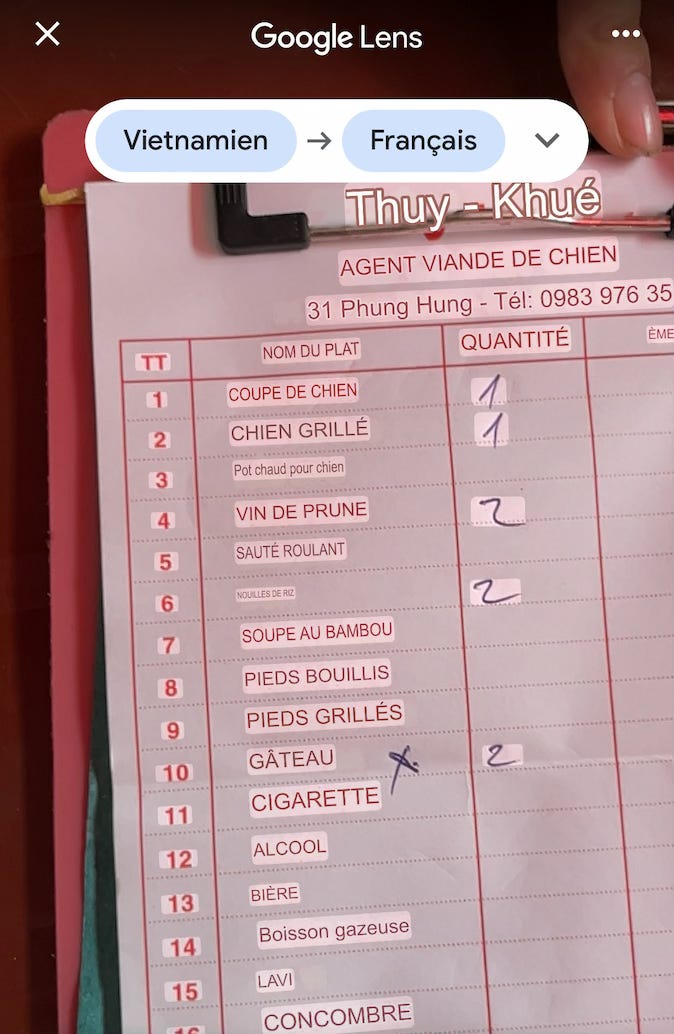 Google Lens
Vietnamien → Français
Thuy - Khué
AGENT VIANDE DE CHIEN
31 Phung Hung - Tél: 0983 976 35
TT NOM DU PLAT QUANTITÉ ÈME
1 COUPE DE CHIEN 1
2 CHIEN GRILLÉ 1
3 Pot chaud pour chien
4 VIN DE PRUNE 2
5 SAUTÉ ROULANT
6 NOUILLES DE RIZ 2
7 SOUPE AU BAMBOU
8 PIEDS BOUILLIS
9 PIEDS GRILLÉS
10 GÂTEAU x 2
11 CIGARETTE
12 ALCOOL
13 BIÈRE
14 Boisson gazeuse
15 LAVI
16 CONCOMBRE